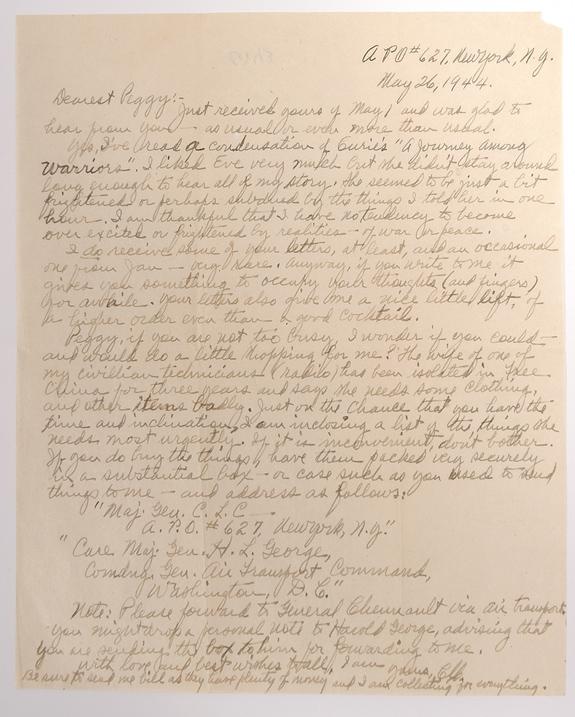 A P O # 627, New York, N.Y.
May 26, 1944.
Dearest Peggy:-
Just received yours of May 1 and was glad to
hear from you — as usual or even more than usual.
Yes, I've read a condensation of Curie's "A Journey Among
Warriors". I liked Eve very much but she didn't stay around
long enough to hear all of my story. She seemed to be just a bit
frightened or perhaps subdued by the things I told her in one
hour. I am thankful that I have no tendency to become
over excited or frightened by realities — of war or peace.
I do receive some of your letters, at least, and an occasional
one from Jan — very rare. Anyway, if you write to me it
gives you something to occupy your thoughts (and fingers)
for awhile. Your letters also give me a nice little lift, of
a higher order even than a good cocktail.
Peggy, if you are not too busy, I wonder if you could —
and would do a little shopping for me? The wife of one of
my civilian technicians (radio) has been isolated in Free
China for three years and says she needs some clothing,
and other items badly. Just on the chance that you have the
time and inclination, I am inclosing a list of the things she
needs most urgently. If it is inconvenient, don't bother.
If you do buy the things, have them packed very securely
in a substantial box — or case such as you used to send
things to me — and address as follows:
"Maj. Gen. C. L. C —
A. P. O. # 627, New York, N.Y."
"Care Maj. Gen. H. L. George,
Comdng. Gen. Air Transport Command,
Washington, D. C."
Note: Please forward to General Chennault via air transport.
You might drop a personal note to Harold George, advising that
you are sending this box to him for forwarding to me.
With love and best wishes to all, I am
yours,
Be sure to send me bill as they have plenty of money and I am collecting for everything.